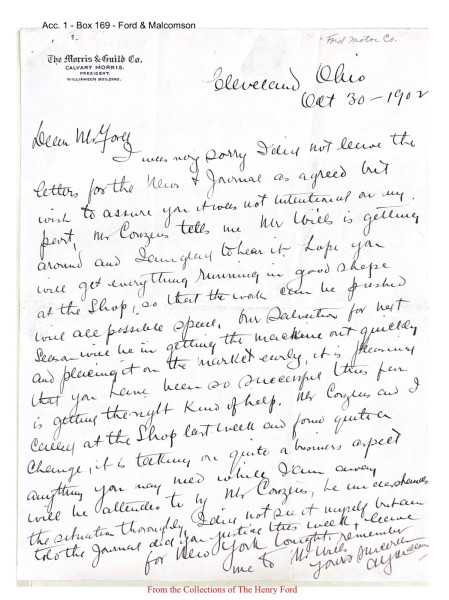 Acc. 1 - Box 169 - Ford & Malcomson
Ford Motor Co.
The Morris & Guild Co.
CALVARY MORRIS.
PRESIDENT.
WILLIAMSON BUILDING.
Cleveland Ohio
Oct 30 - 1902
Dear Mr Ford
I was very sorry I did not leave the
letters for the News & Journal as agreed but
wish to assure you it was not intentional on my
part, Mr Couzens tells me Mr Wills is getting
around and I am glad to hear it. I hope you
will get everything running in good shape
at the Shop, so that the work can be pushed
with all possible speed. Our Salvation for next
Season will be in getting the machine out quickly
and placing it on the market early, it is pleasing
that you have been so successful thus far
is getting the right kind of help. Mr Couzens and I
called at the Shop last week and found quite a
change, it is taking on quite a business aspect
anything you may need while I am away
will be attended to by Mr Couzens, he understands
the situation thoroughly I did not see it myself but am
told the Journal did you justice this week I leave
for New York tonight, remember
me to Mr Wills
Yours sincerely
From the Collections of The Henry Ford